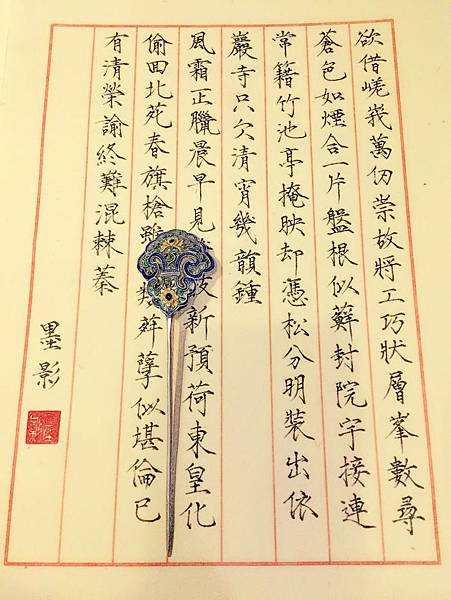 欲借嵯峩萬仞崇故將工巧狀層峯數尋
蒼色如煙合一片盤根似蘚封院宇接連
常籍竹池亭掩映却憑松分明裝出依
巖寺只欠清宵幾韻鍾
風霜正臘晨早見新預荷東皇化
偷囬北苑春旗槍孽似堪倫已
有清榮諭終難混棘蓁
墨影